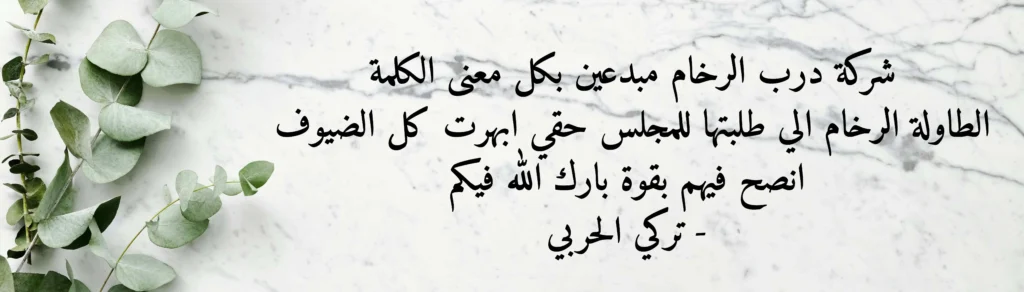 شركة درب الرخام مبدعين بكل معنى الكلمة
الطاولة الرخام الي طلبتها للمجلس حقي ابهرت كل الضيوف
انصح فيهم بقوة بارك الله فيكم
- تركي الحربي